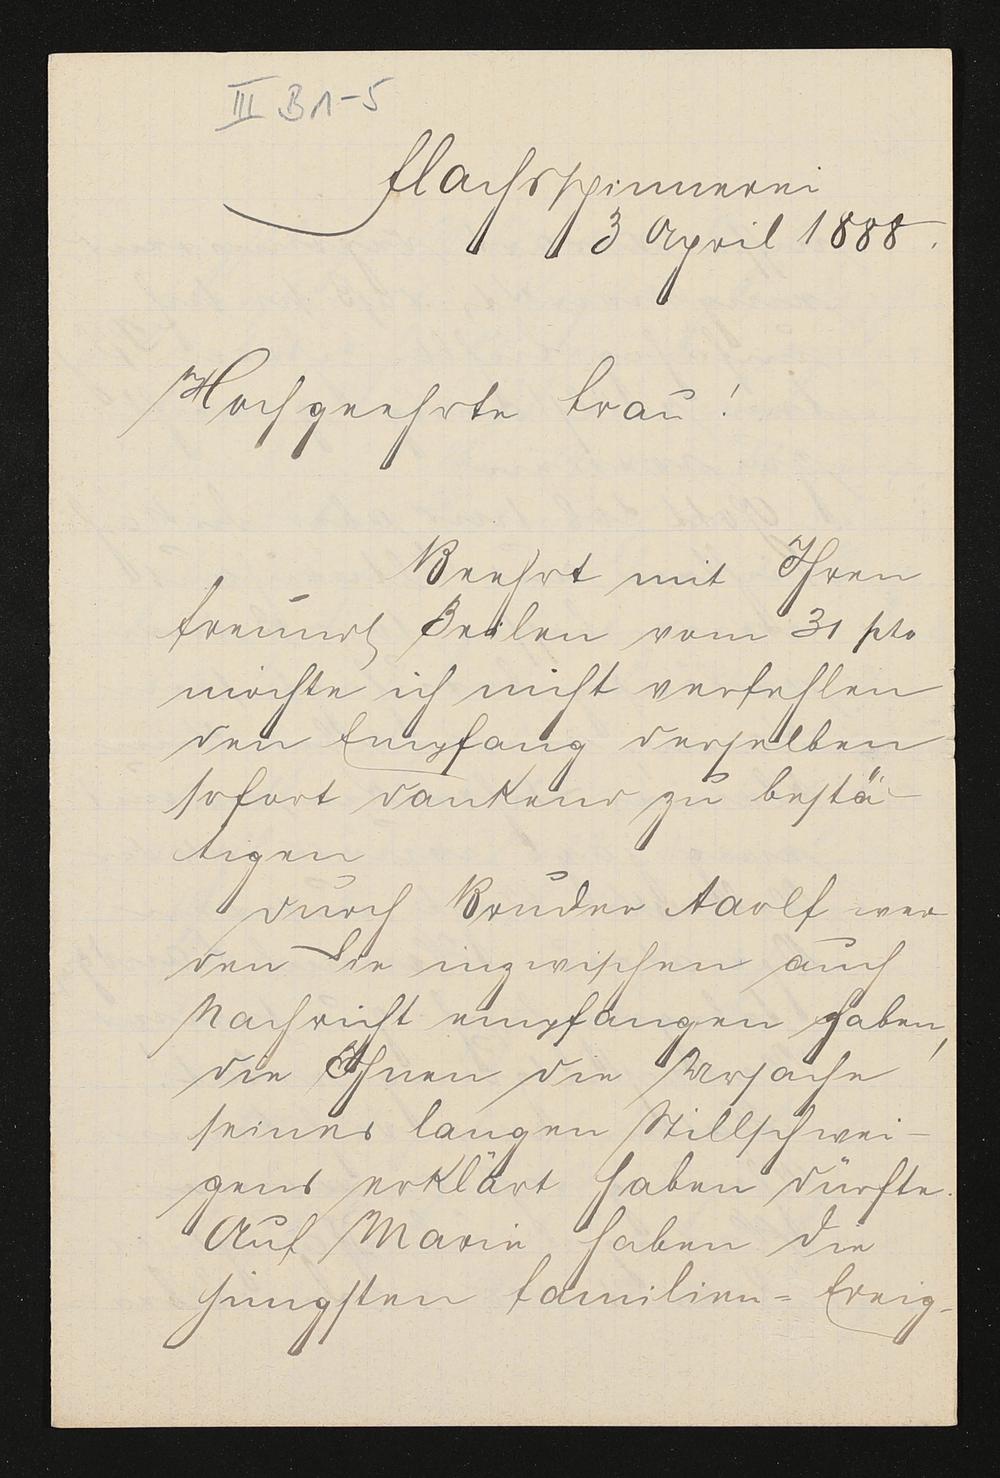 III B 1-5
Flachsspinnerei
3 April 1888.
Hochgeehrte Frau!
Beehrt mit Ihren
freundl Zeilen vom 31 pto
möchte ich nicht verfehlen
den Empfang derselben
sofort dankend zu bestä-
tigen
Durch Bruder Adolf wer
den Sie inzwischen auch
Nachricht empfangen haben,
die Ihnen die Ursache
seines langen Stillschwei-
gens erklärt haben dürfte.
Auf Marie haben die
jüngsten Familien= Ereig-